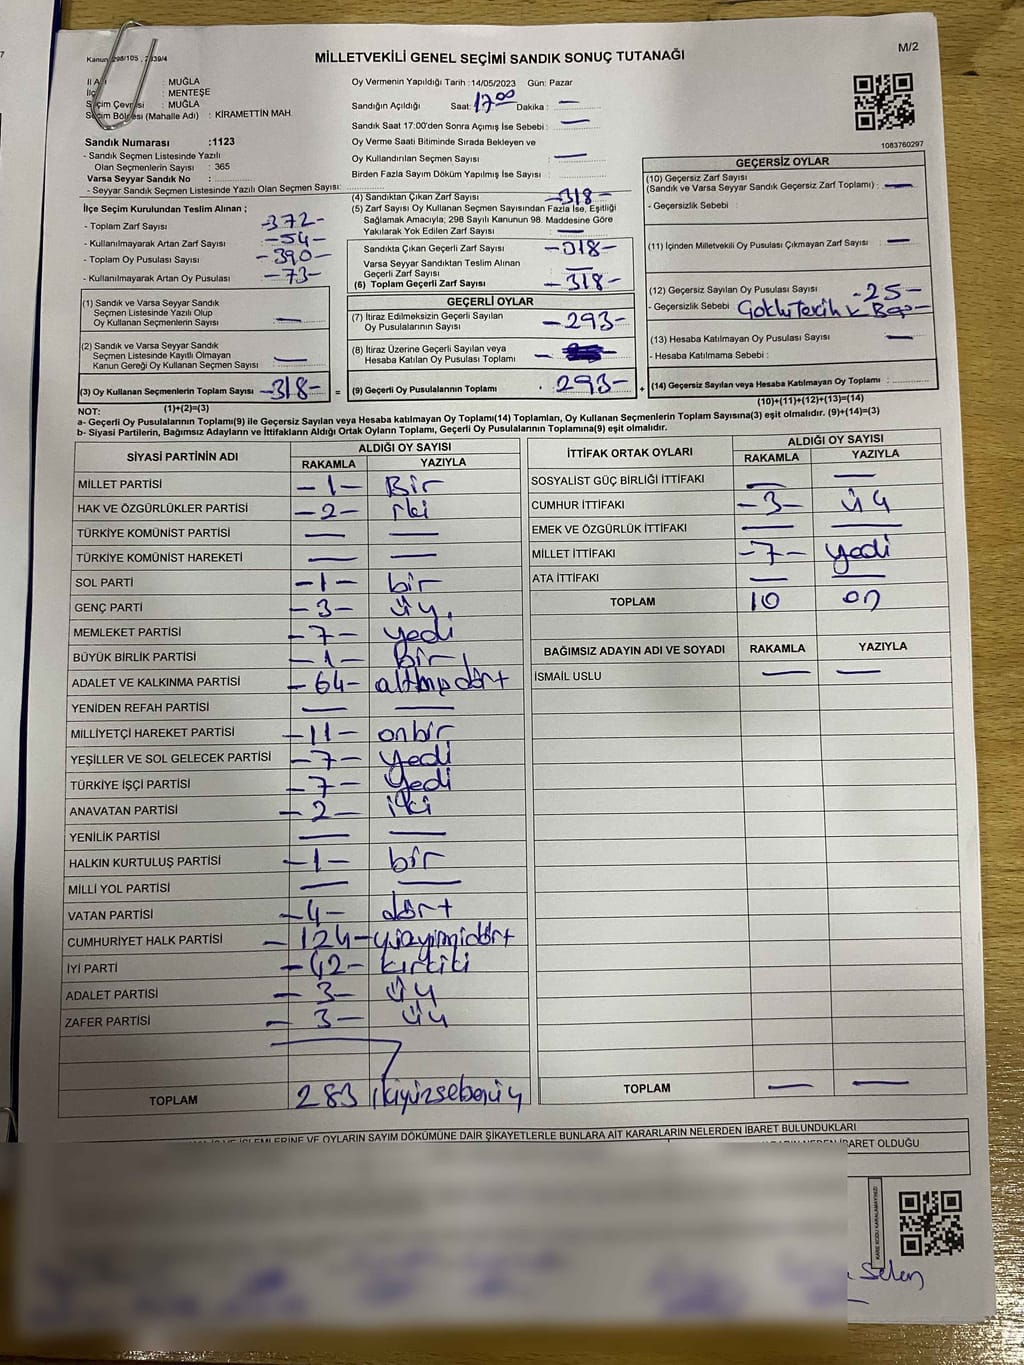 Kanun 298/105 , 2839/4
M/2
MİLLETVEKİLİ GENEL SEÇİMİ SANDIK SONUÇ TUTANAĞI
İl Adı : MUĞLA
: MENTEŞE
Seçim Çevresi : MUĞLA
Seçim Bölgesi (Mahalle Adı) : KİRAMETTİN MAH.
Sandık Numarası :1123
- Sandık Seçmen Listesinde Yazılı
Olan Seçmenlerin Sayısı : 365
Varsa Seyyar Sandık No :
- Seyyar Sandık Seçmen Listesinde Yazılı Olan Seçmen Sayısı:
Oy Vermenin Yapıldığı Tarih :14/05/2023 Gün: Pazar
Sandığın Açıldığı Saat: 17:00 Dakika : —
Sandık Saat 17:00'den Sonra Açımış İse Sebebi : —
Oy Verme Saati Bitiminde Sırada Bekleyen ve
Oy Kullandırılan Seçmen Sayısı : —
Birden Fazla Sayım Döküm Yapılmış İse Sayısı :
1083760297
İlçe Seçim Kurulundan Teslim Alınan ;
- Toplam Zarf Sayısı : -372-
- Kullanılmayarak Artan Zarf Sayısı : -54-
- Toplam Oy Pusulası Sayısı : -390-
- Kullanılmayarak Artan Oy Pusulası : -73-
(1) Sandık ve Varsa Seyyar Sandık
Seçmen Listesinde Yazılı Olup
Oy Kullanan Seçmenlerin Sayısı : —
(2) Sandık ve Varsa Seyyar Sandık
Seçmen Listesinde Kayıtlı Olmayan
Kanun Gereği Oy Kullanan Seçmen Sayısı : —
(3) Oy Kullanan Seçmenlerin Toplam Sayısı -318- =
(1)+(2)=(3)
(4) Sandıktan Çıkan Zarf Sayısı : -318-
(5) Zarf Sayısı Oy Kullanan Seçmen Sayısından Fazla İse, Eşitliği
Sağlamak Amacıyla; 298 Sayılı Kanunun 98. Maddesine Göre
Yakılarak Yok Edilen Zarf Sayısı : —
Sandıkta Çıkan Geçerli Zarf Sayısı : -318-
Varsa Seyyar Sandıktan Teslim Alınan
Geçerli Zarf Sayısı : —
(6) Toplam Geçerli Zarf Sayısı : -318-
GEÇERLİ OYLAR
(7) İtiraz Edilmeksizin Geçerli Sayılan
Oy Pusulalarının Sayısı : -293-
(8) İtiraz Üzerine Geçerli Sayılan veya
Hesaba Katılan Oy Pusulası Toplamı :
(9) Gerçerli Oy Pusulalarının Toplamı : 293- +
GEÇERSİZ OYLAR
(10) Geçersiz Zarf Sayısı
(Sandık ve Varsa Seyyar Sandık Geçersiz Zarf Toplamı) : —
- Geçersizlik Sebebi :
(11) İçinden Milletvekili Oy Pusulası Çıkmayan Zarf Sayısı : —
(12) Geçersiz Sayılan Oy Pusulası Sayısı : -25-
- Geçersizlik Sebebi :
(13) Hesaba Katılmayan Oy Pusulası Sayısı : —
- Hesaba Katılmama Sebebi :
(14) Geçersiz Sayılan veya Hesaba Katılmayan Oy Toplamı :
(10)+(11)+(12)+(13)=(14)
NOT:
a- Geçerli Oy Pusulalarının Toplamı(9) ile Geçersiz Sayılan veya Hesaba katılmayan Oy Toplamı(14) Toplamları, Oy Kullanan Seçmenlerin Toplam Sayısına(3) eşit olmalıdır. (9)+(14)=(3)
b- Siyasi Partilerin, Bağımsız Adayların ve İttifakların Aldığı Ortak Oyların Toplamı, Geçerli Oy Pusulalarının Toplamına(9) eşit olmalıdır.
SİYASİ PARTİNİN ADI ALDIĞI OY SAYISI
RAKAMLA YAZIYLA
MİLLET PARTİSİ -1- Bir
HAK VE ÖZGÜRLÜKLER PARTİSİ -2- iki
TÜRKİYE KOMÜNİST PARTİSİ — —
TÜRKİYE KOMÜNİST HAREKETİ — —
SOL PARTİ -1- bir
GENÇ PARTİ -3- üç
MEMLEKET PARTİSİ -7- yedi
BÜYÜK BİRLİK PARTİSİ -1- Bir
ADALET VE KALKINMA PARTİSİ -64- altmış dört
YENİDEN REFAH PARTİSİ — —
MİLLİYETÇİ HAREKET PARTİSİ -11- onbir
YEŞİLLER VE SOL GELECEK PARTİSİ -7- yedi
TÜRKİYE İŞÇİ PARTİSİ -7- Yedi
ANAVATAN PARTİSİ -2- iki
YENİLİK PARTİSİ — —
HALKIN KURTULUŞ PARTİSİ -1- bir
MİLLİ YOL PARTİSİ — —
VATAN PARTİSİ -4- dört
CUMHURİYET HALK PARTİSİ -124- yüzyirmidört
İYİ PARTİ -42- kırkiki
ADALET PARTİSİ -3- üç
ZAFER PARTİSİ -3- üç
TOPLAM 283
İTTİFAK ORTAK OYLARI ALDIĞI OY SAYISI
RAKAMLA YAZIYLA
SOSYALİST GÜÇ BİRLİĞİ İTTİFAKI — —
CUMHUR İTTİFAKI -3- üç
EMEK VE ÖZGÜRLÜK İTTİFAKI — —
MİLLET İTTİFAKI -7- yedi
ATA İTTİFAKI — —
TOPLAM 10 on
BAĞIMSIZ ADAYIN ADI VE SOYADI RAKAMLA YAZIYLA
İSMAİL USLU — —
TOPLAM — —
İŞLEMLERİNE VE OYLARIN SAYIM DÖKÜMÜNE DAİR ŞİKAYETLERLE BUNLARA AİT KARARLARIN NELERDEN İBARET BULUNDUKLARI
NEDEN İBARET OLDUĞU
KARE KODU KARALAMAYINIZ!
Selen